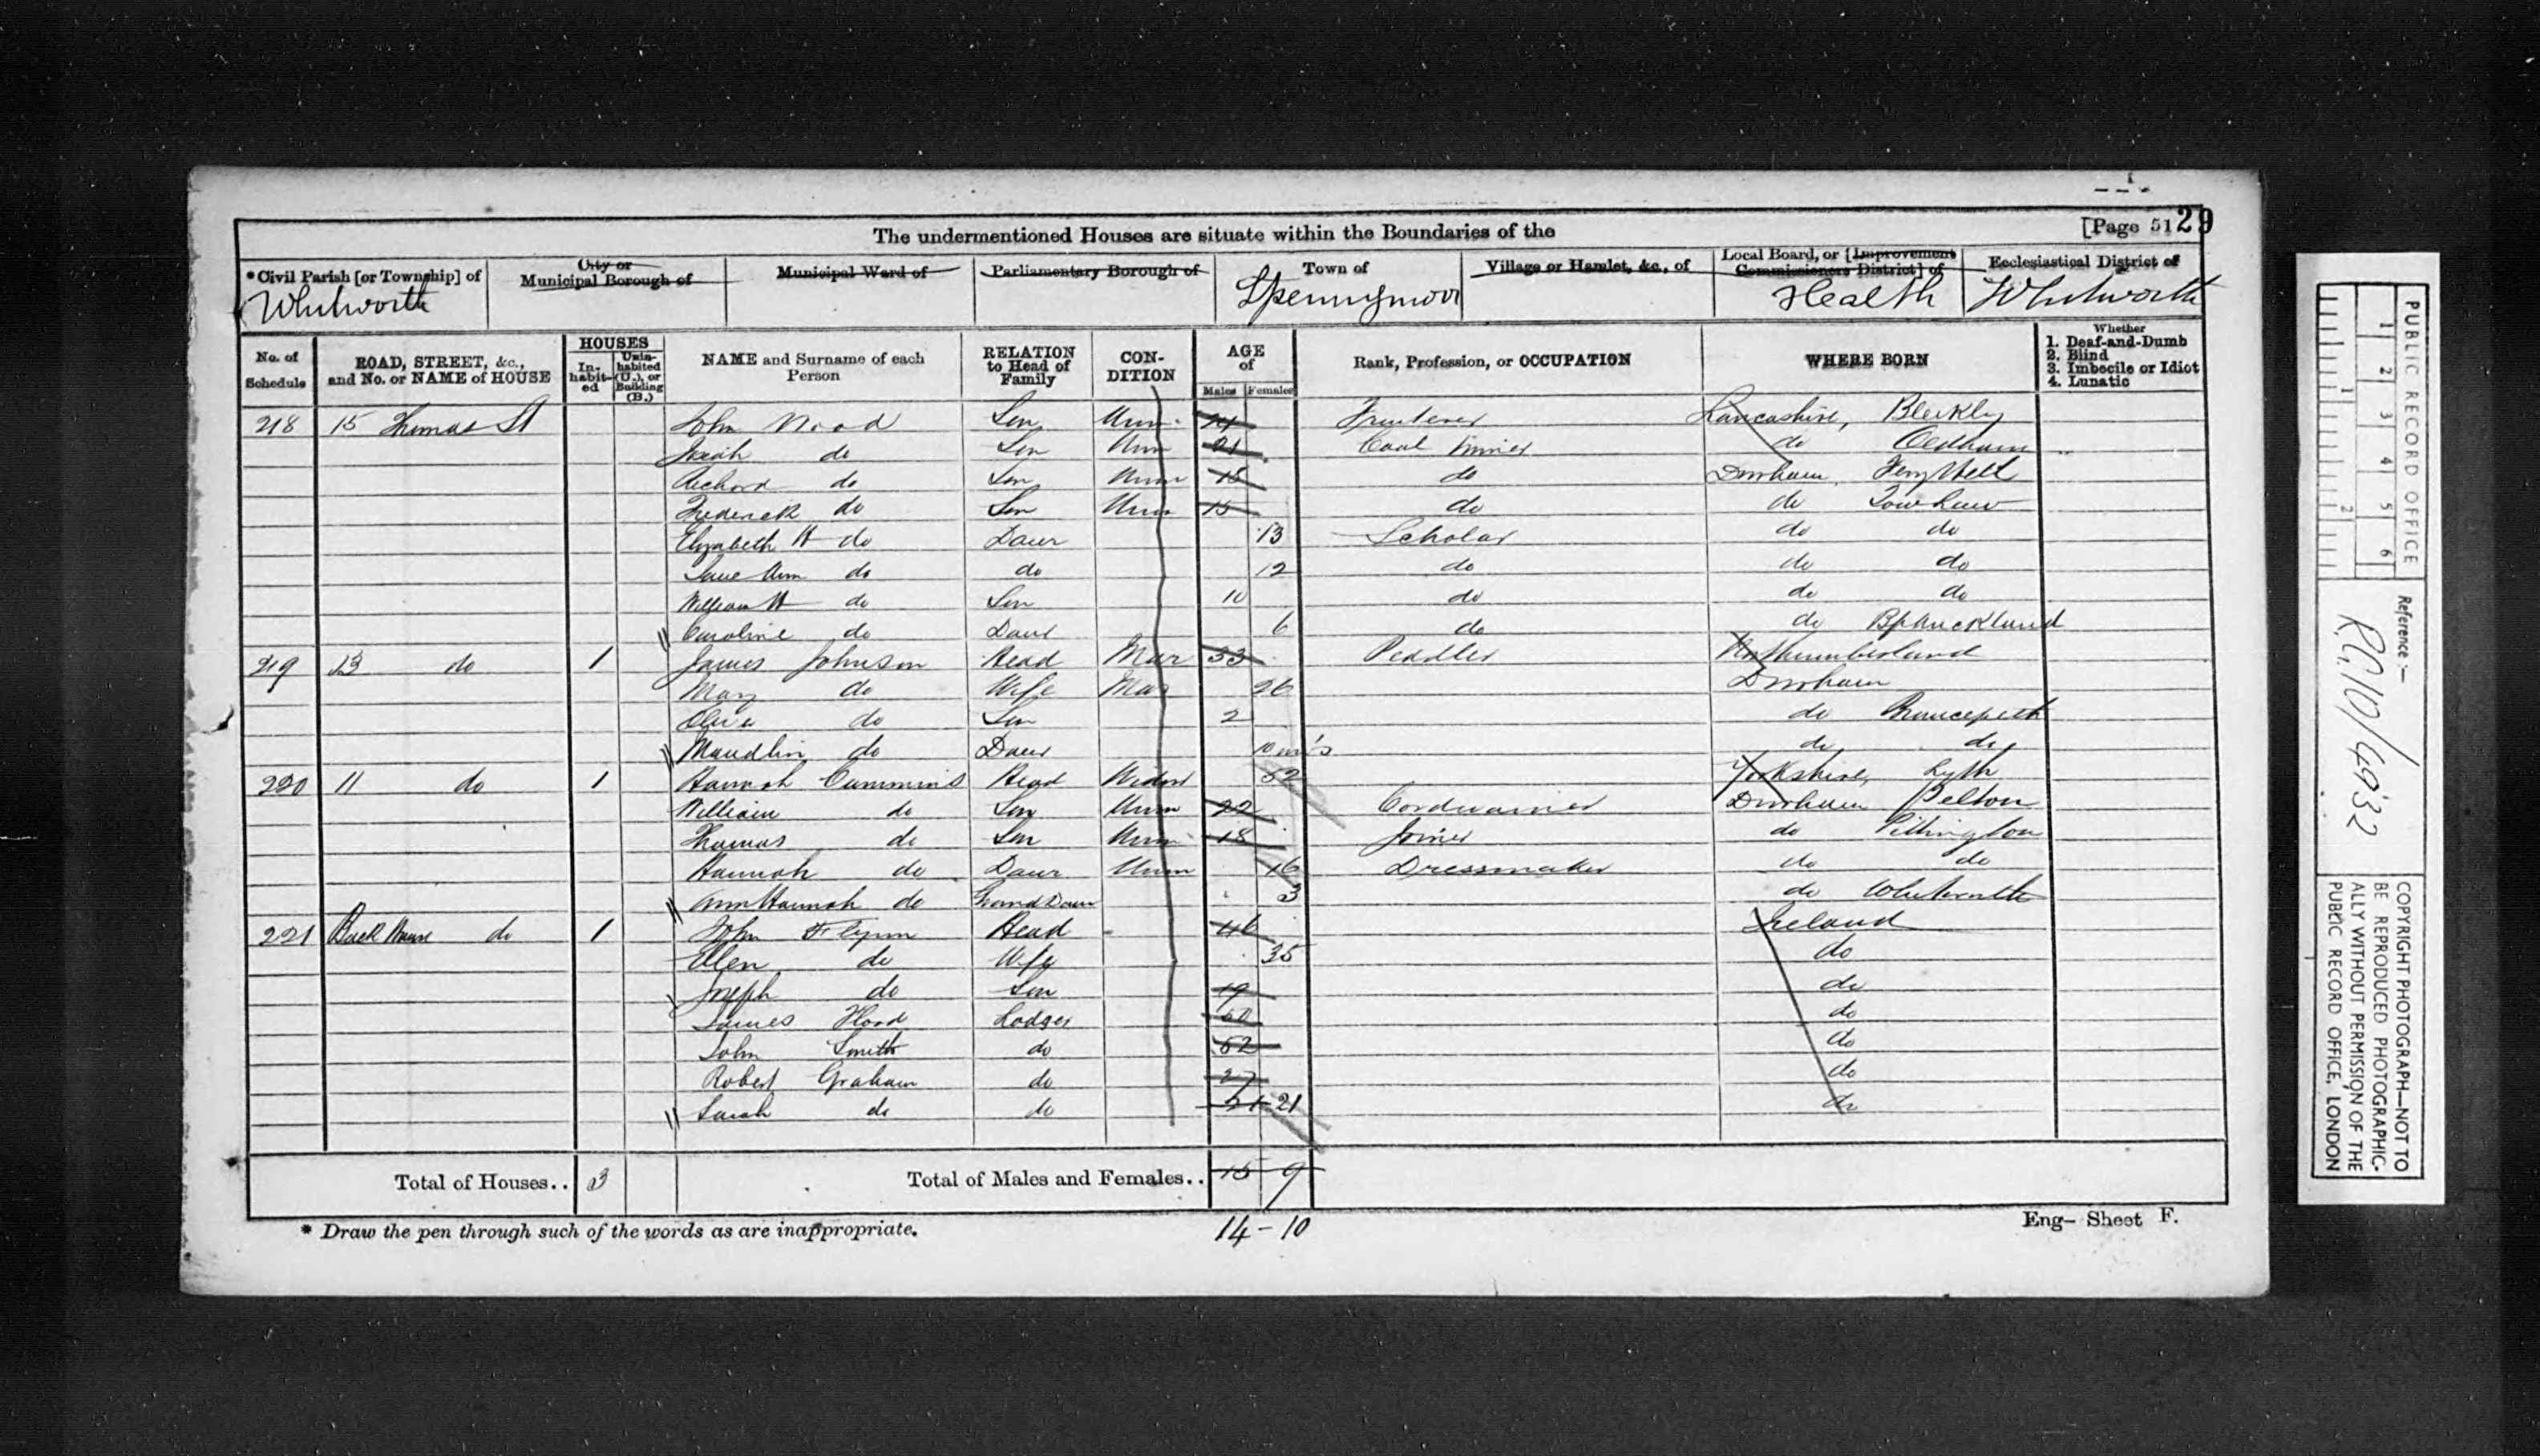 [Page 51 29
The undermentioned Houses are situate within the Boundaries of the
*Civil Parish [or Township] of City or Municipal Borough of Municipal Ward of Parliamentary Borough of Town of Village or Hamlet, &c., of Local Board, or [Improvement Commissioners District] of Ecclesiastical District of
Whitworth Spennymoor Health Whitworth
No. of Schedule ROAD, STREET, &c., and No. or NAME of HOUSE HOUSES Inhabited Uninhabited (U.), or Building (B.) NAME and Surname of each Person RELATION to Head of Family CONDITION AGE of Males Females Rank, Profession, or OCCUPATION WHERE BORN Whether 1. Deaf-and-Dumb 2. Blind 3. Imbecile or Idiot 4. Lunatic
218 15 Thomas St John Wood Son Unm Lancashire,
do Son Unm 21 Coal Miner do Oldham
Richard do Son Unm 18 do Durham
Frederick do Son Unm 15 do do Tow Law
Elizabeth H do Daur 13 Scholar do do
Jane Ann do do 12 do do do
William H do Son 10 do do do
Caroline do Daur 6 do do Bp Auckland
219 13 do 1 James Johnson Head Mar 33 Peddler Northumberland
Mary do Wife Mar 26 Durham
do Son 2 do Brancepeth
Maudlin do Daur 10 do do
220 11 do 1 Hannah Cummins Head Widow 52 Yorkshire, Lyth
William do Son Unm 22 Cordwainer Durham Pelton
Thomas do Son Unm 18 Joiner do Pittington
Hannah do Daur Unm 16 Dressmaker do do
Ann Hannah do Grand Daur 3 do Whitworth
221 Back House do 1 John Flynn Head 46 Ireland
Ellen do Wife 35 do
Joseph do Son 19 do
James Lodger 60 do
John Smith do 62 do
Robert Graham do 27 do
Sarah do do 21 21 do
Total of Houses.. 3 Total of Males and Females.. 15 9
* Draw the pen through such of the words as are inappropriate. 14 - 10 Eng- Sheet F.
PUBLIC RECORD OFFICE
1 2 3 4 5 6
1 2
Reference :-
R.G.10/4932
COPYRIGHT PHOTOGRAPH—NOT TO
BE REPRODUCED PHOTOGRAPHIC-
ALLY WITHOUT PERMISSION OF THE
PUBLIC RECORD OFFICE, LONDON